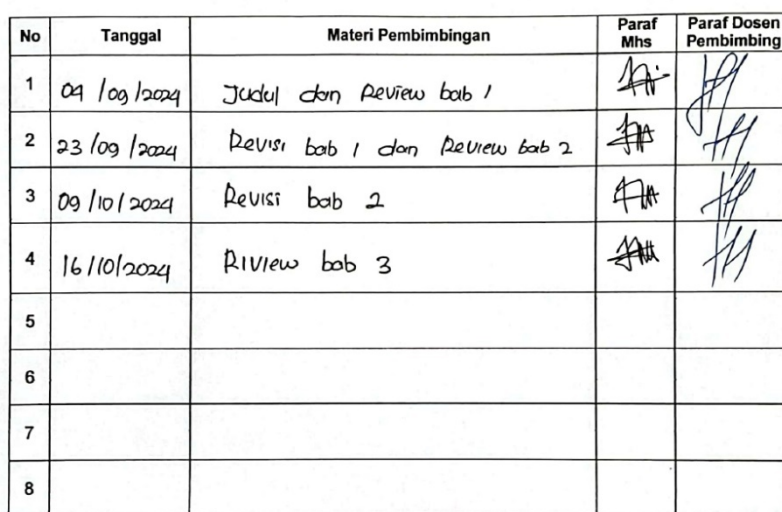 No Tanggal Materi Pembimbingan Paraf Mhs Paraf Dosen Pembimbing
1 09/09/2024 Judul dan Review bab 1
2 23/09/2024 Revisi bab 1 dan Review bab 2
3 09/10/2024 Revisi bab 2
4 16/10/2024 Riview bab 3
5
6
7
8